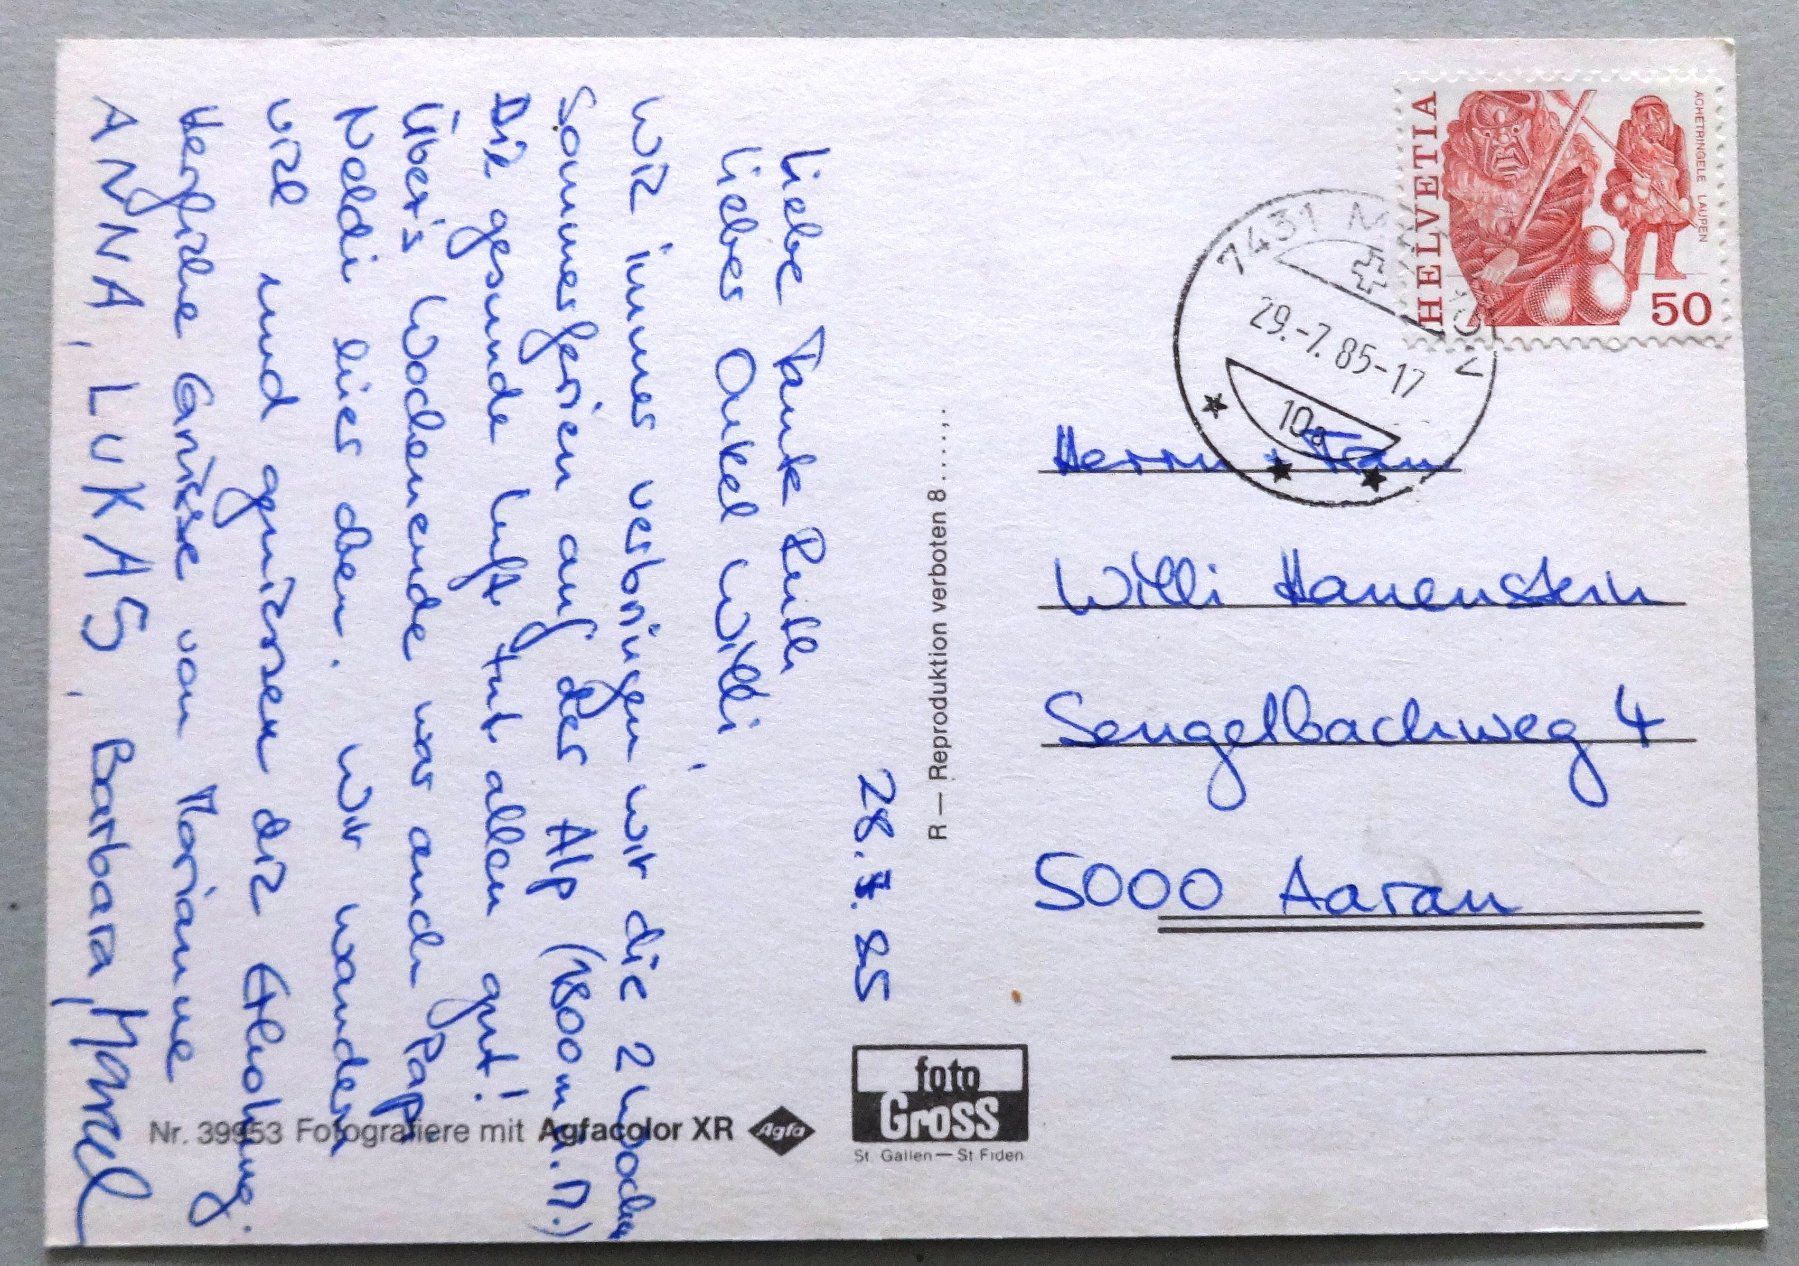 28.7.85
Liebe Tante Ruth
Lieber Onkel Willi,
Wie immer verbringen wir die 2 Wochen
Sommerferien auf der Alp (1800 m ü.M.)
Die gesunde Luft tut allen gut!
Über's Wochenende war auch Papi
Noldi hier oben. Wir wandern
viel und geniessen die Erholung.
Herzliche Grüsse von Marianne
ANNA, LUKAS, Barbara, Marcel
Nr. 39953 Fotografiere mit Agfacolor XR Agfa
R — Reproduktion verboten 8.....,..
foto
Gross
St. Gallen — St Fiden
HELVETIA
ACHETRINGELE LAUPEN
50
7431
29.-7.85-17
10a
Herrn + Frau
Willi Hauenstein
Sengelbachweg 4
5000 Aarau